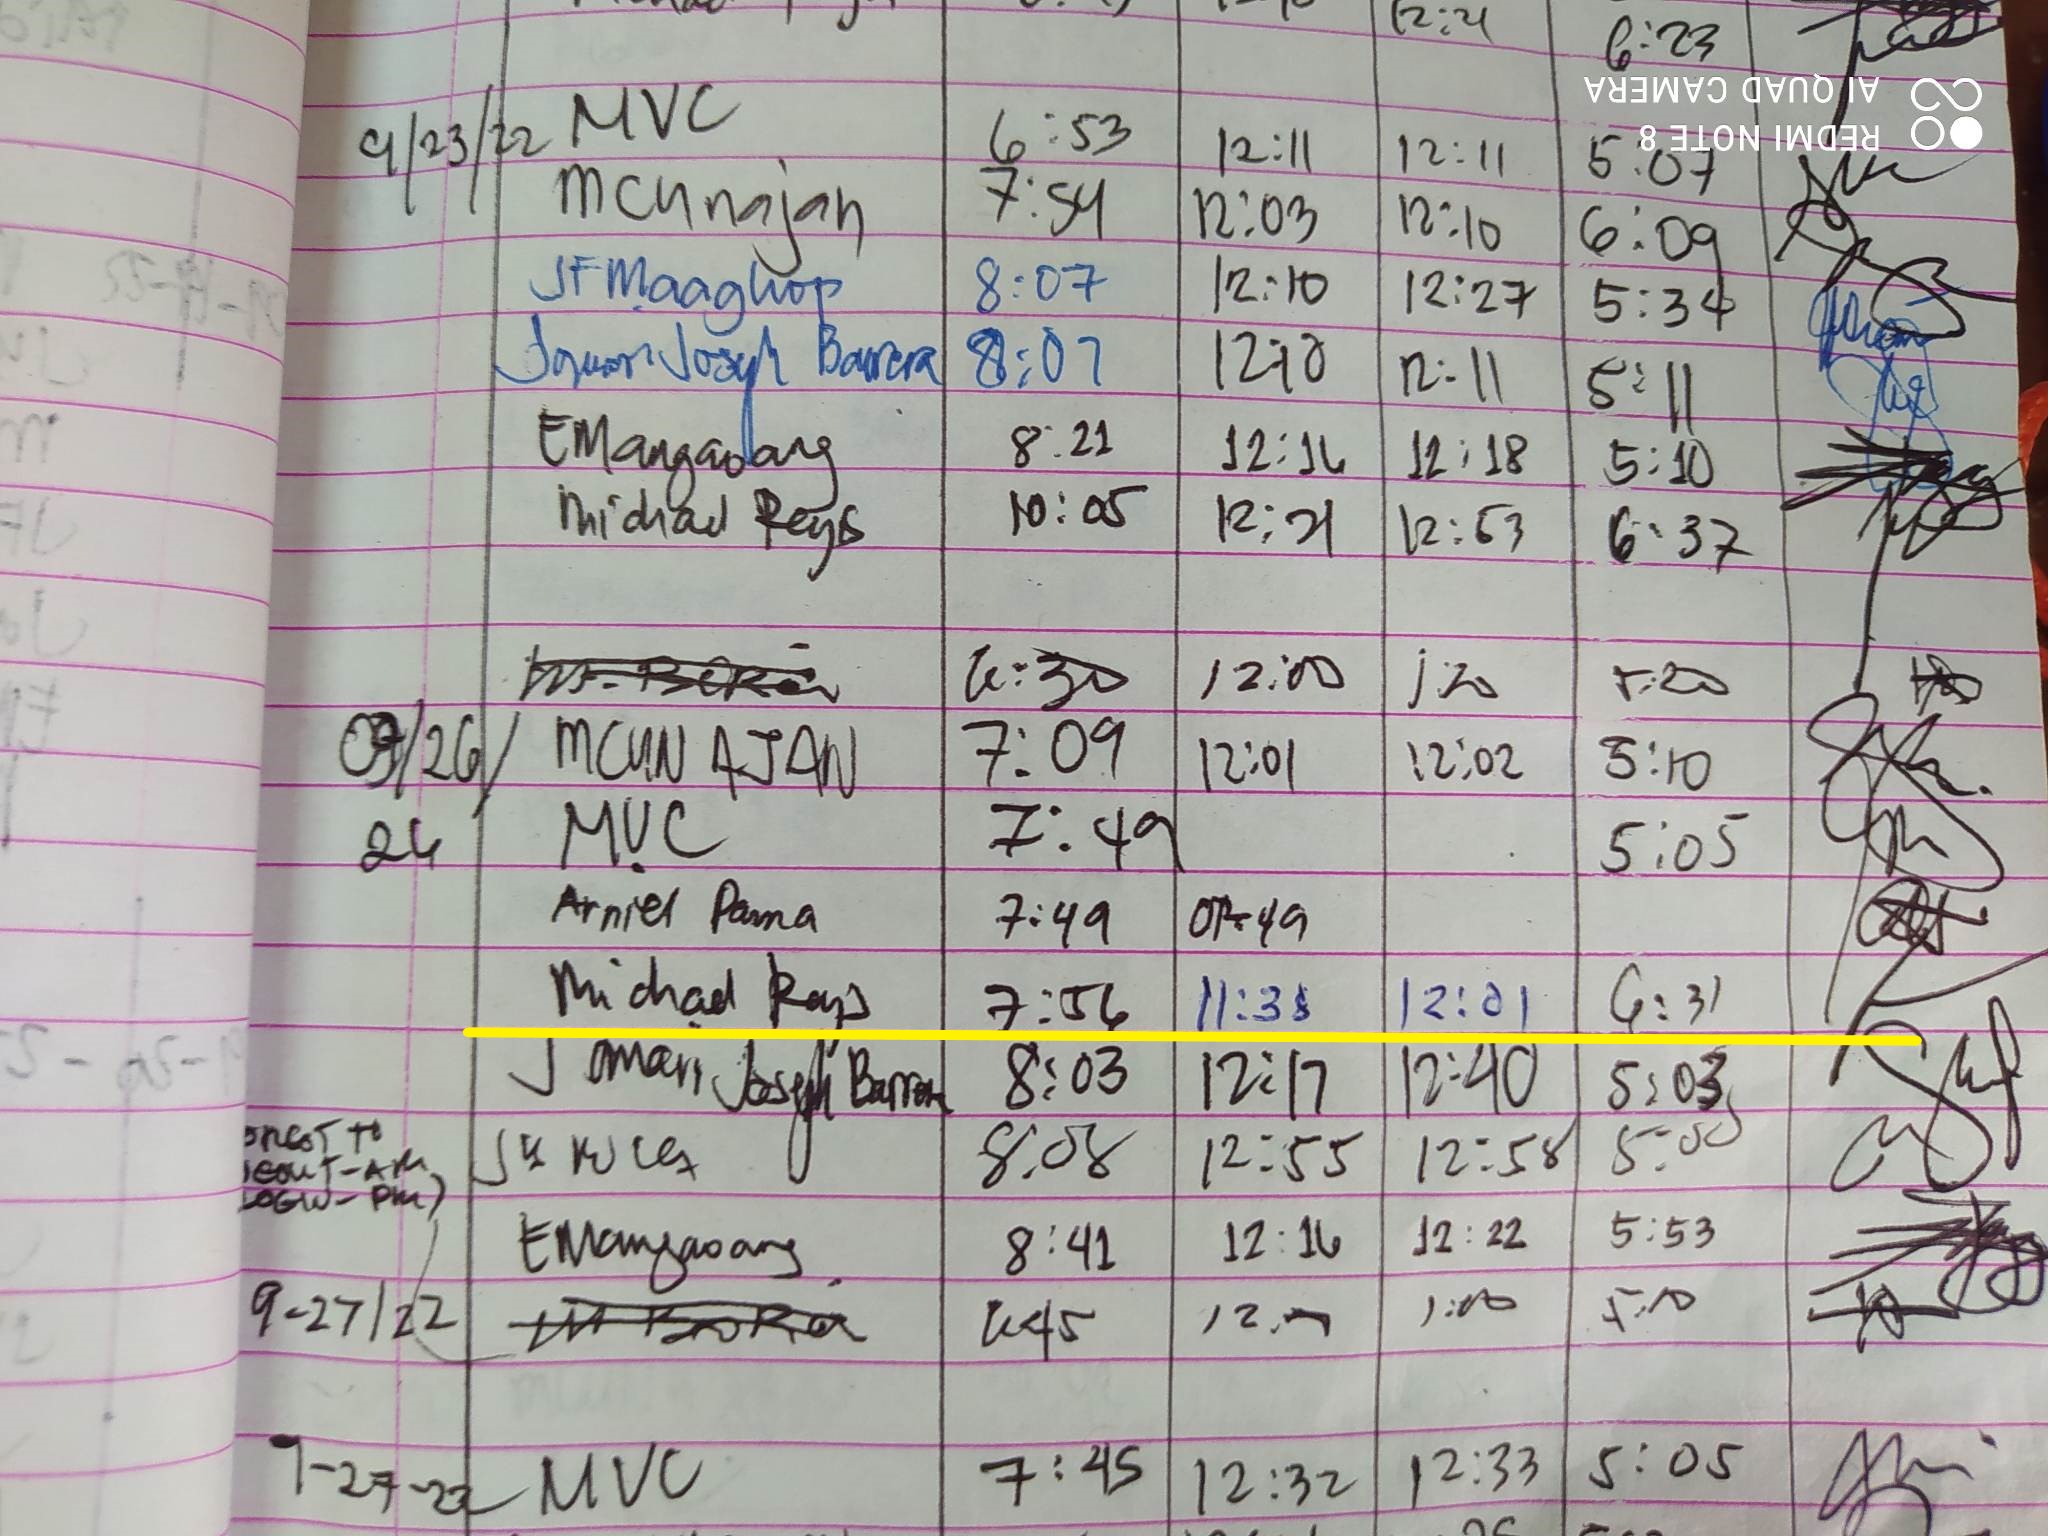 12:21
6:23
REDMI NOTE 8
AI QUAD CAMERA
9/23/22 MVC 6:53 12:11 12:11 5:07
MCUnajan 7:54 12:03 12:10 6:09
JFMaaghop 8:07 12:10 12:27 5:34
Joseph Barrera 8:07 12:10 12:11 5:11
EMangaoang 8:21 12:16 12:18 5:10
Michael Reyes 10:05 12:21 12:53 6:37
12:00 1:20 5:20
09/26/ MCUNAJAN 7:09 12:01 12:02 5:10
MVC 7:49 5:05
Arniel Pama 7:49 07:49
Michael Reyes 7:56 11:38 12:01 6:31
Jomari Joseph Barrera 8:03 12:17 12:40 5:03
8:08 12:55 12:58 5:00
EMangaoang 8:41 12:16 12:22 5:53
9-27/22 1:00 5:10
9-27-22 MVC 7:45 12:32 12:33 5:05